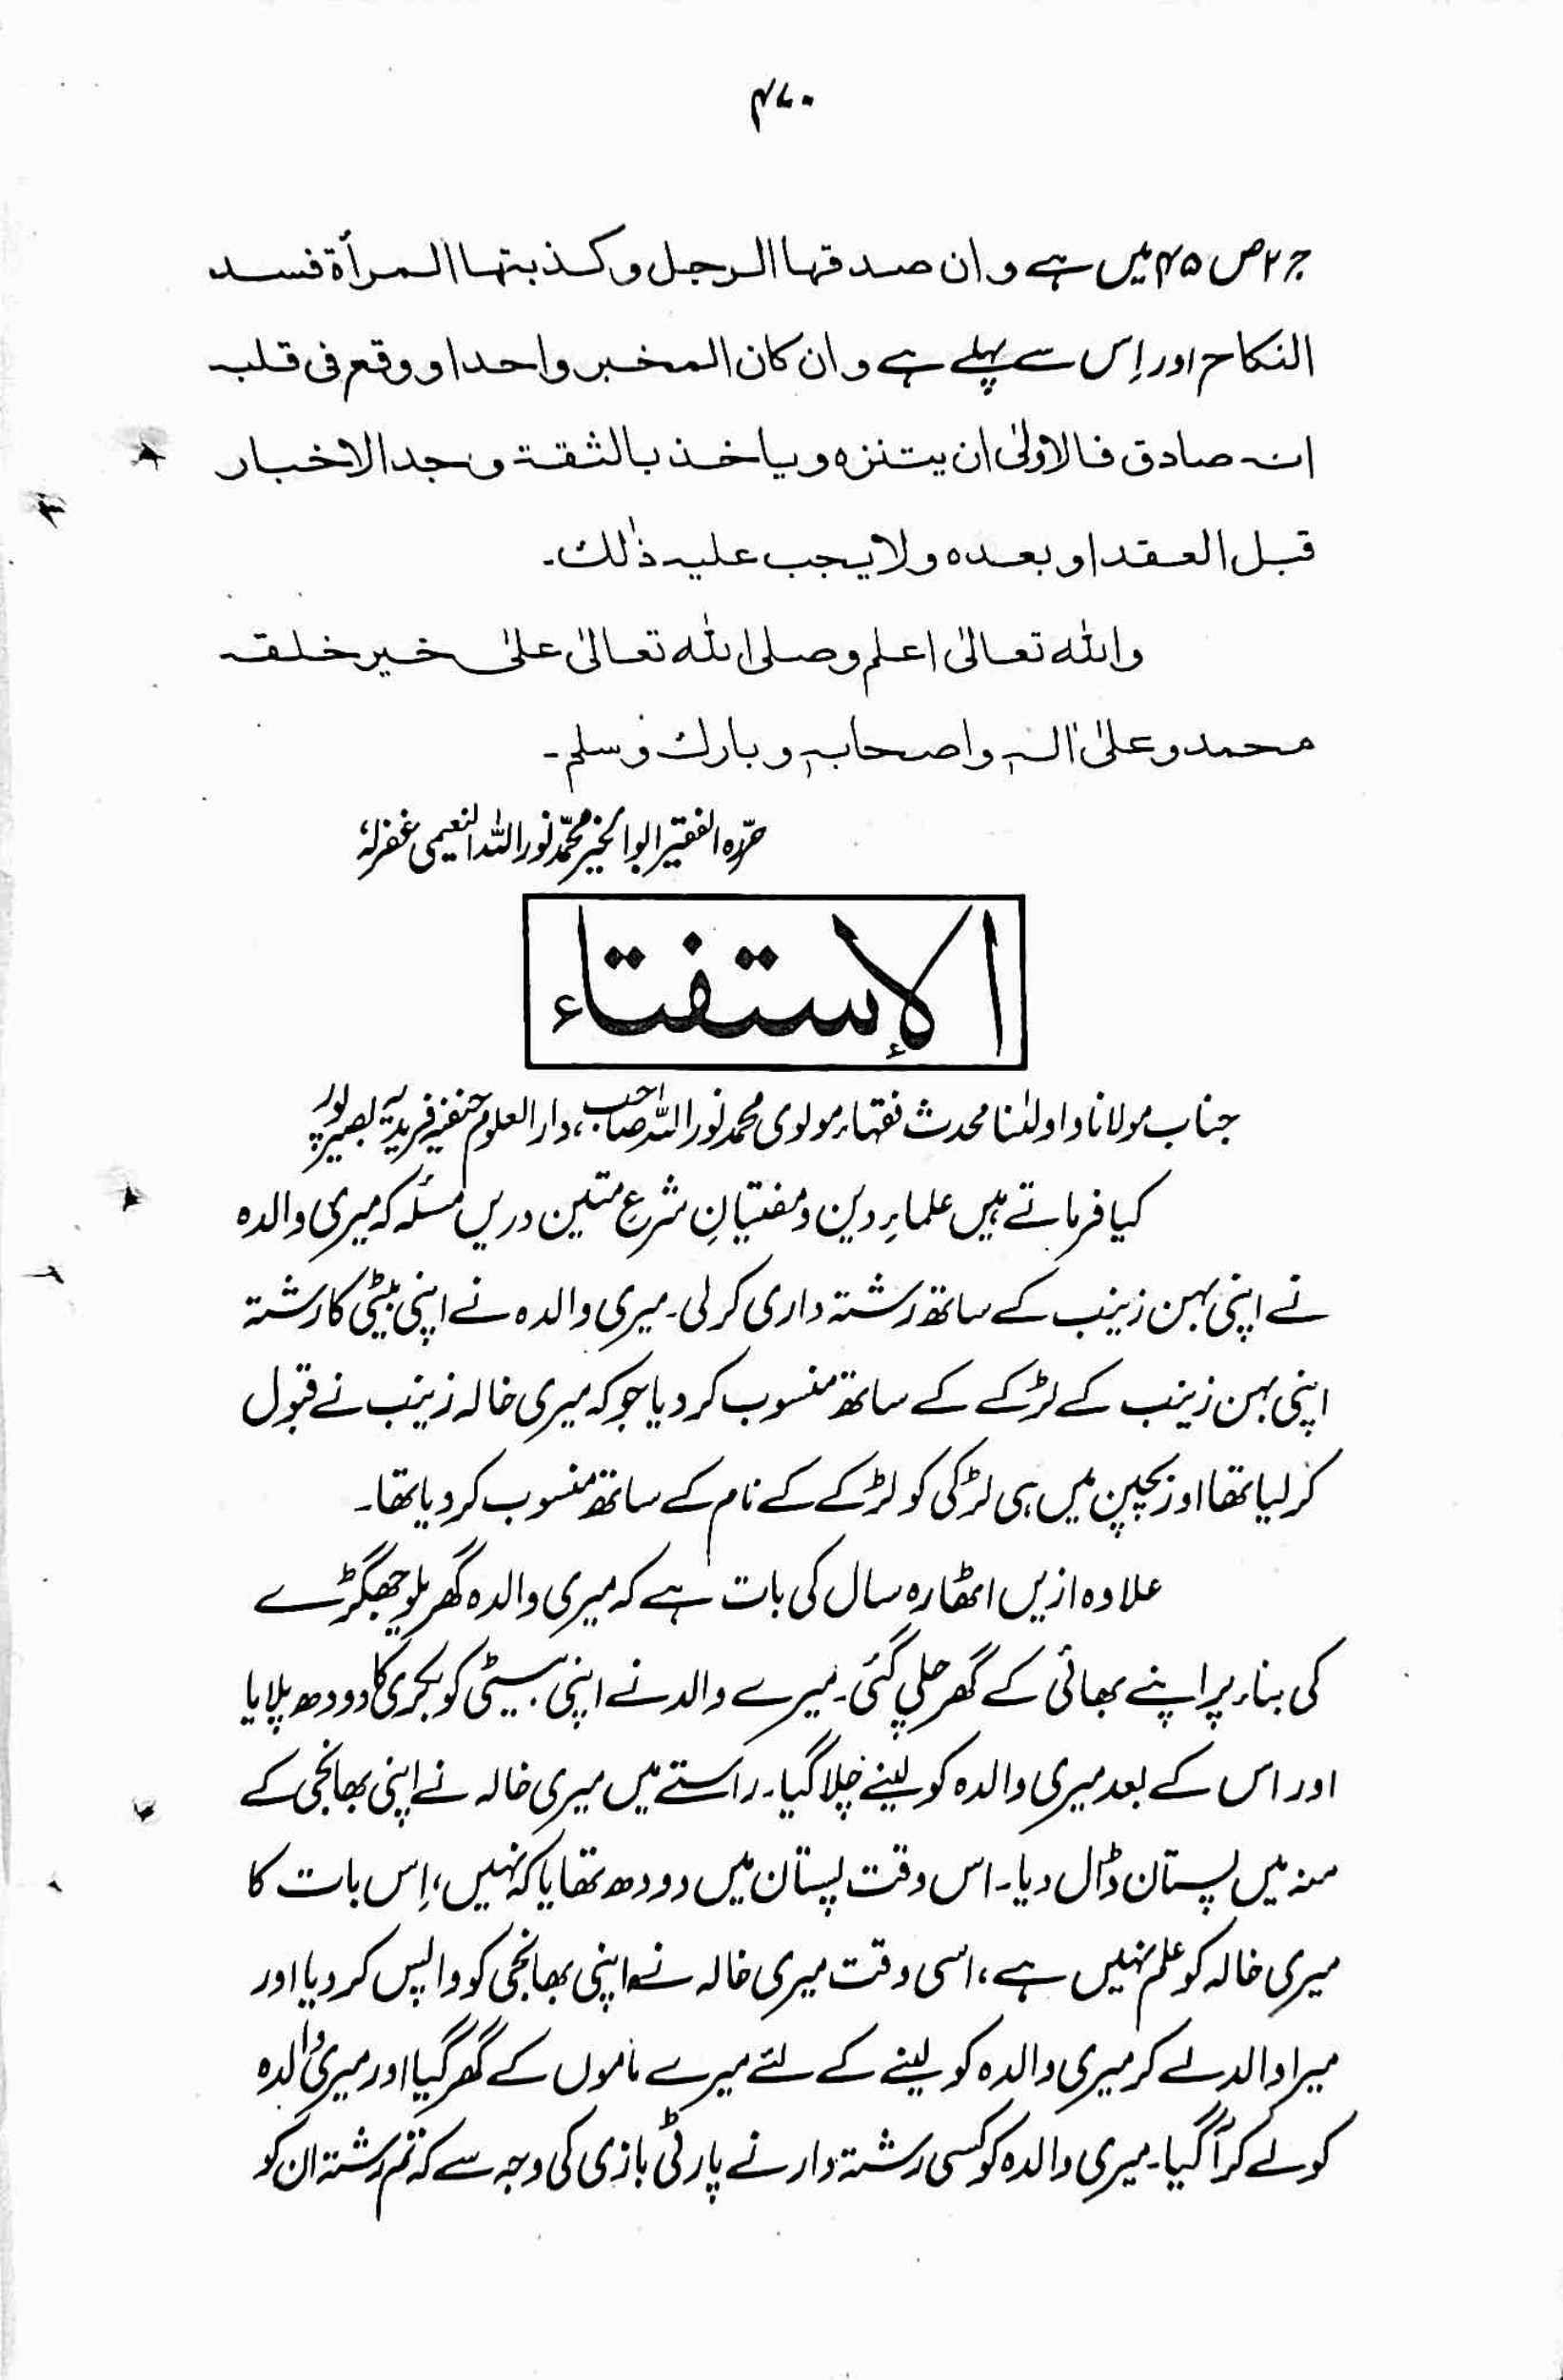 ۴۷۰
ج ۲ ص ۴۵ میں ہے وان صدقها الرجل وکذبتها المرأة فسد
النکاح اور اِس سے پہلے ہے وان کان المخبر واحدا ووقع فی قلبہ
انہ صادق فالاولیٰ ان یتنزہ ویاخذ بالثقة وجد الاخبار
قبل العقد او بعدہ ولا یجب علیہ ذٰلک۔
واللہ تعالیٰ اعلم وصلی اللہ تعالیٰ علیٰ خیر خلقہ
محمد وعلیٰ اٰلہٖ واصحابہٖ وبارک وسلم۔
حرّرہ الفقیر ابوالخیر محمّد نور اللہ النعیمی غفرلہٗ
الإستفتاء
جناب مولانا واولٰنا محدث فقہاء مولوی محمد نور اللہ صاحب، دار العلوم حنفیہ فریدیہ بصیرپور
کیا فرماتے ہیں علماءِ دین ومفتیانِ شرعِ متین دریں مسئلہ کہ میری والدہ
نے اپنی بہن زینب کے ساتھ رشتہ داری کرلی۔ میری والدہ نے اپنی بیٹی کا رشتہ
اپنی بہن زینب کے لڑکے کے ساتھ منسوب کر دیا جو کہ میری خالہ زینب نے قبول
کر لیا تھا اور بچپن میں ہی لڑکی کو لڑکے کے نام کے ساتھ منسوب کر دیا تھا۔
علاوہ ازیں اٹھارہ سال کی بات ہے کہ میری والدہ گھریلو جھگڑے
کی بناء پر اپنے بھائی کے گھر چلی گئی۔ میرے والد نے اپنی بیٹی کو بکری کا دودھ پلایا
اور اس کے بعد میری والدہ کو لینے چلا گیا۔ راستے میں میری خالہ نے اپنی بھانجی کے
منہ میں پستان ڈال دیا۔ اس وقت پستان میں دودھ تھا یا کہ نہیں، اِس بات کا
میری خالہ کو علم نہیں ہے، اسی وقت میری خالہ نے اپنی بھانجی کو واپس کر دیا اور
میرا والد لے کر میری والدہ کو لینے کے لئے میرے ماموں کے گھر گیا اور میری والدہ
کو لے کر آ گیا۔ میری والدہ کو کسی رشتہ دار نے پارٹی بازی کی وجہ سے کہ تم رشتہ ان کو